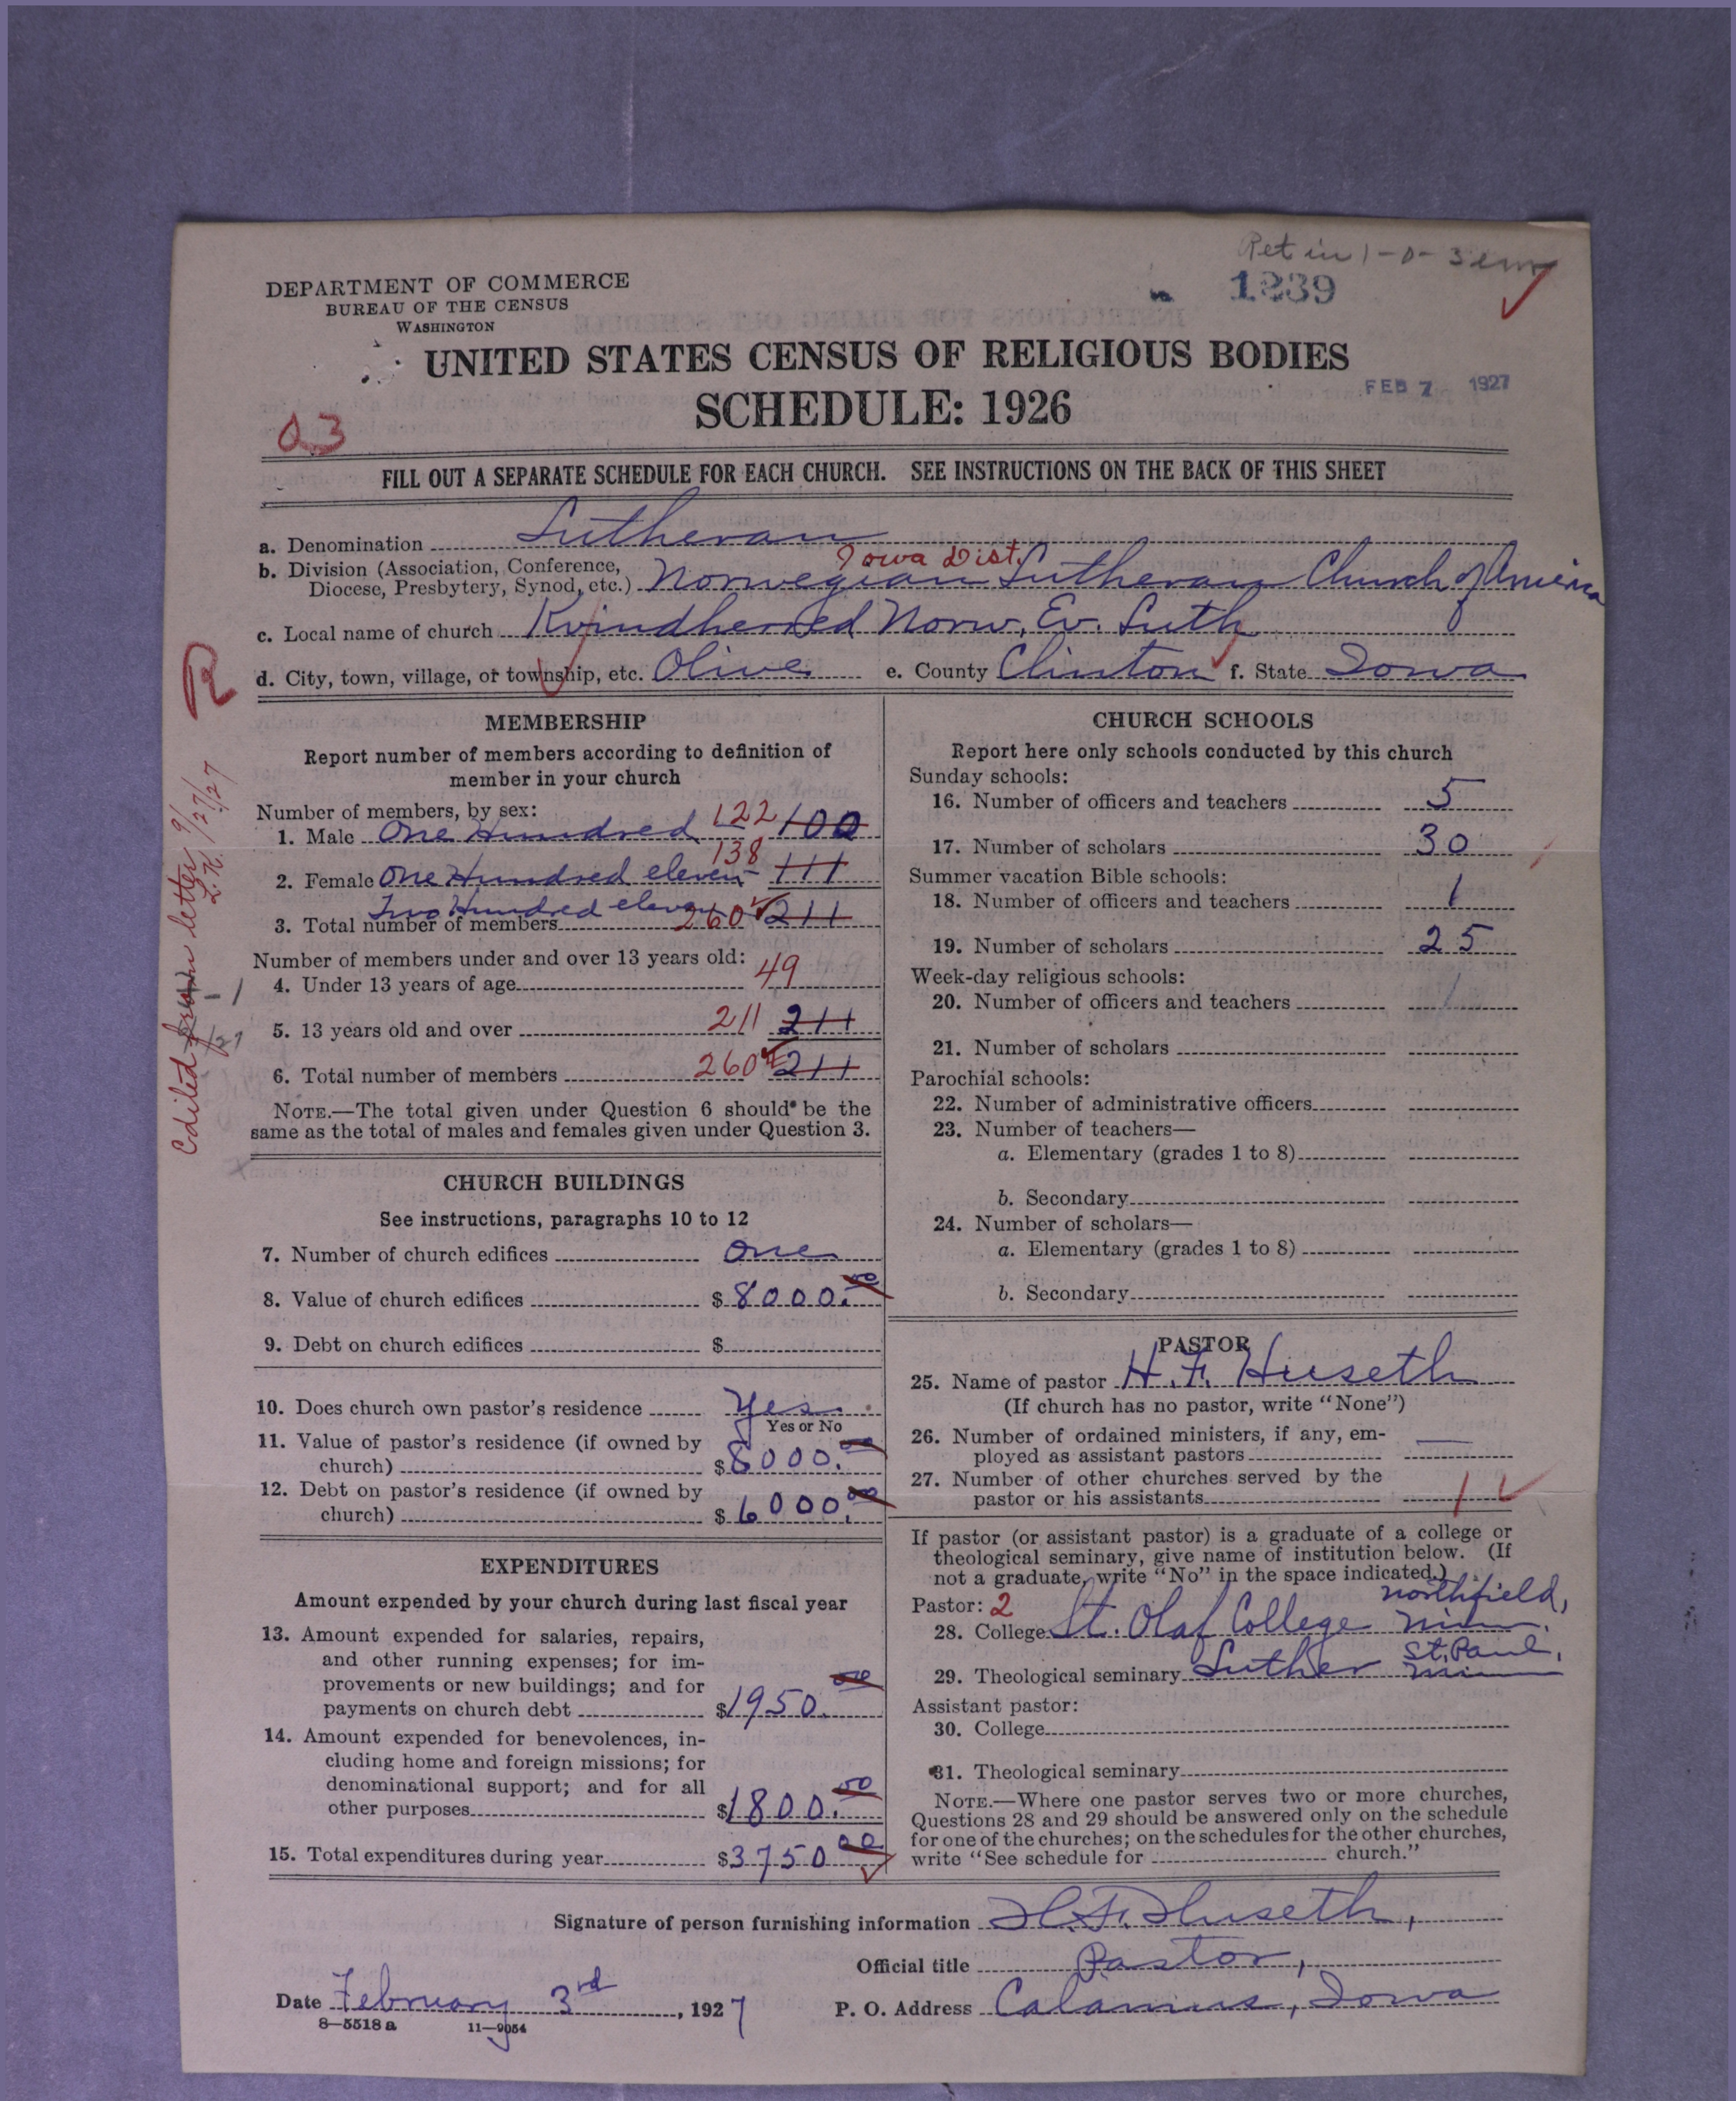 Ret in 1-0-3
1239
DEPARTMENT OF COMMERCE
BUREAU OF THE CENSUS
WASHINGTON
UNITED STATES CENSUS OF RELIGIOUS BODIES
SCHEDULE: 1926
FEB 7 1927
03
FILL OUT A SEPARATE SCHEDULE FOR EACH CHURCH. SEE INSTRUCTIONS ON THE BACK OF THIS SHEET
a. Denomination Lutheran
Iowa Dist.
b. Division (Association, Conference,
Diocese, Presbytery, Synod, etc.) Norwegian Lutheran Church of America
c. Local name of church Kvindherred Norw. Ev. Luth
d. City, town, village, or township, etc. Olive e. County Clinton f. State Iowa
R
Edited from letter 9/27/27
L.K.
MEMBERSHIP
Report number of members according to definition of
member in your church
Number of members, by sex:
1. Male One Hundred 122 100
2. Female One Hundred eleven 138 111
Two Hundred eleven
3. Total number of members 260 211
Number of members under and over 13 years old:
4. Under 13 years of age 49
5. 13 years old and over 211 211
6. Total number of members 260 211
NOTE.—The total given under Question 6 should be the
same as the total of males and females given under Question 3.
CHURCH BUILDINGS
See instructions, paragraphs 10 to 12
7. Number of church edifices One
8. Value of church edifices $ 8000.00
9. Debt on church edifices $
10. Does church own pastor's residence Yes.
Yes or No
11. Value of pastor's residence (if owned by
church) $ 8000.00
12. Debt on pastor's residence (if owned by
church) $ 6000.00
EXPENDITURES
Amount expended by your church during last fiscal year
13. Amount expended for salaries, repairs,
and other running expenses; for im-
provements or new buildings; and for
payments on church debt $1950.00
14. Amount expended for benevolences, in-
cluding home and foreign missions; for
denominational support; and for all
other purposes $1800.00
15. Total expenditures during year $3750.00
CHURCH SCHOOLS
Report here only schools conducted by this church
Sunday schools:
16. Number of officers and teachers 5
17. Number of scholars 30
Summer vacation Bible schools:
18. Number of officers and teachers 1
19. Number of scholars 25
Week-day religious schools:
20. Number of officers and teachers 1
21. Number of scholars
Parochial schools:
22. Number of administrative officers
23. Number of teachers—
a. Elementary (grades 1 to 8)
b. Secondary
24. Number of scholars—
a. Elementary (grades 1 to 8)
b. Secondary
PASTOR
25. Name of pastor H. F. Huseth
(If church has no pastor, write "None")
26. Number of ordained ministers, if any, em-
ployed as assistant pastors —
27. Number of other churches served by the
pastor or his assistants 1
If pastor (or assistant pastor) is a graduate of a college or
theological seminary, give name of institution below. (If
not a graduate, write "No" in the space indicated.)
Pastor: 2 Northfield,
28. College St. Olaf College Minn.
St. Paul,
29. Theological seminary Luther Minn
Assistant pastor:
30. College
31. Theological seminary
NOTE.—Where one pastor serves two or more churches,
Questions 28 and 29 should be answered only on the schedule
for one of the churches; on the schedules for the other churches,
write "See schedule for church."
Signature of person furnishing information H. F. Huseth,
Official title Pastor,
Date February 3rd, 1927 P. O. Address Calamus, Iowa
8—5518 a 11—9054